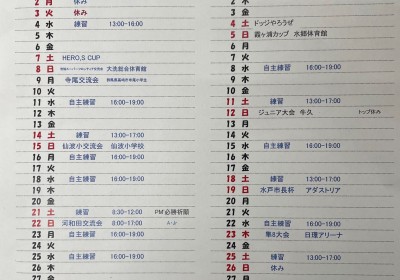 2 月 休み
3 火 休み
4 水 練習 13:00-16:00
5 木
6 金
7 土 HERO,S CUP
8 日 大洗総合体育館
9 月 寺尾交流会
10 火
11 水 自主練習 16:00-19:00
12 木
13 金
14 土 練習 13:00-17:00
15 日 仙波小交流会 仙波小学校
16 月 自主練習 16:00-19:00
17 火
18 水 自主練習 16:00-19:00
19 木
20 金
21 土 練習 8:30-12:00 PM必勝祈願
22 日 河和田交流会 8:00-17:00
23 月 自主練習 16:00-19:00
24 火
25 水 自主練習 16:00-19:00
26 木
27 金
2 木
3 金
4 土 ドッジやろうぜ
5 日 霞ヶ浦カップ 水郷体育館
6 月
7 火
8 水 自主練習 16:00-19:00
9 木
10 金
11 土 練習 13:00-17:00
12 日 ジュニア大会 牛久 トップ休み
13 月
14 火
15 水 自主練習 16:00-19:00
16 木
17 金
18 土 練習 13:00-17:00
19 日 水戸市長杯 アダストリア
20 月
21 火
22 水 自主練習 16:00-19:00
23 木 隼8大会 日環アリーナ
24 金
25 土 練習 13:00-17:00
26 日 休み
27 月